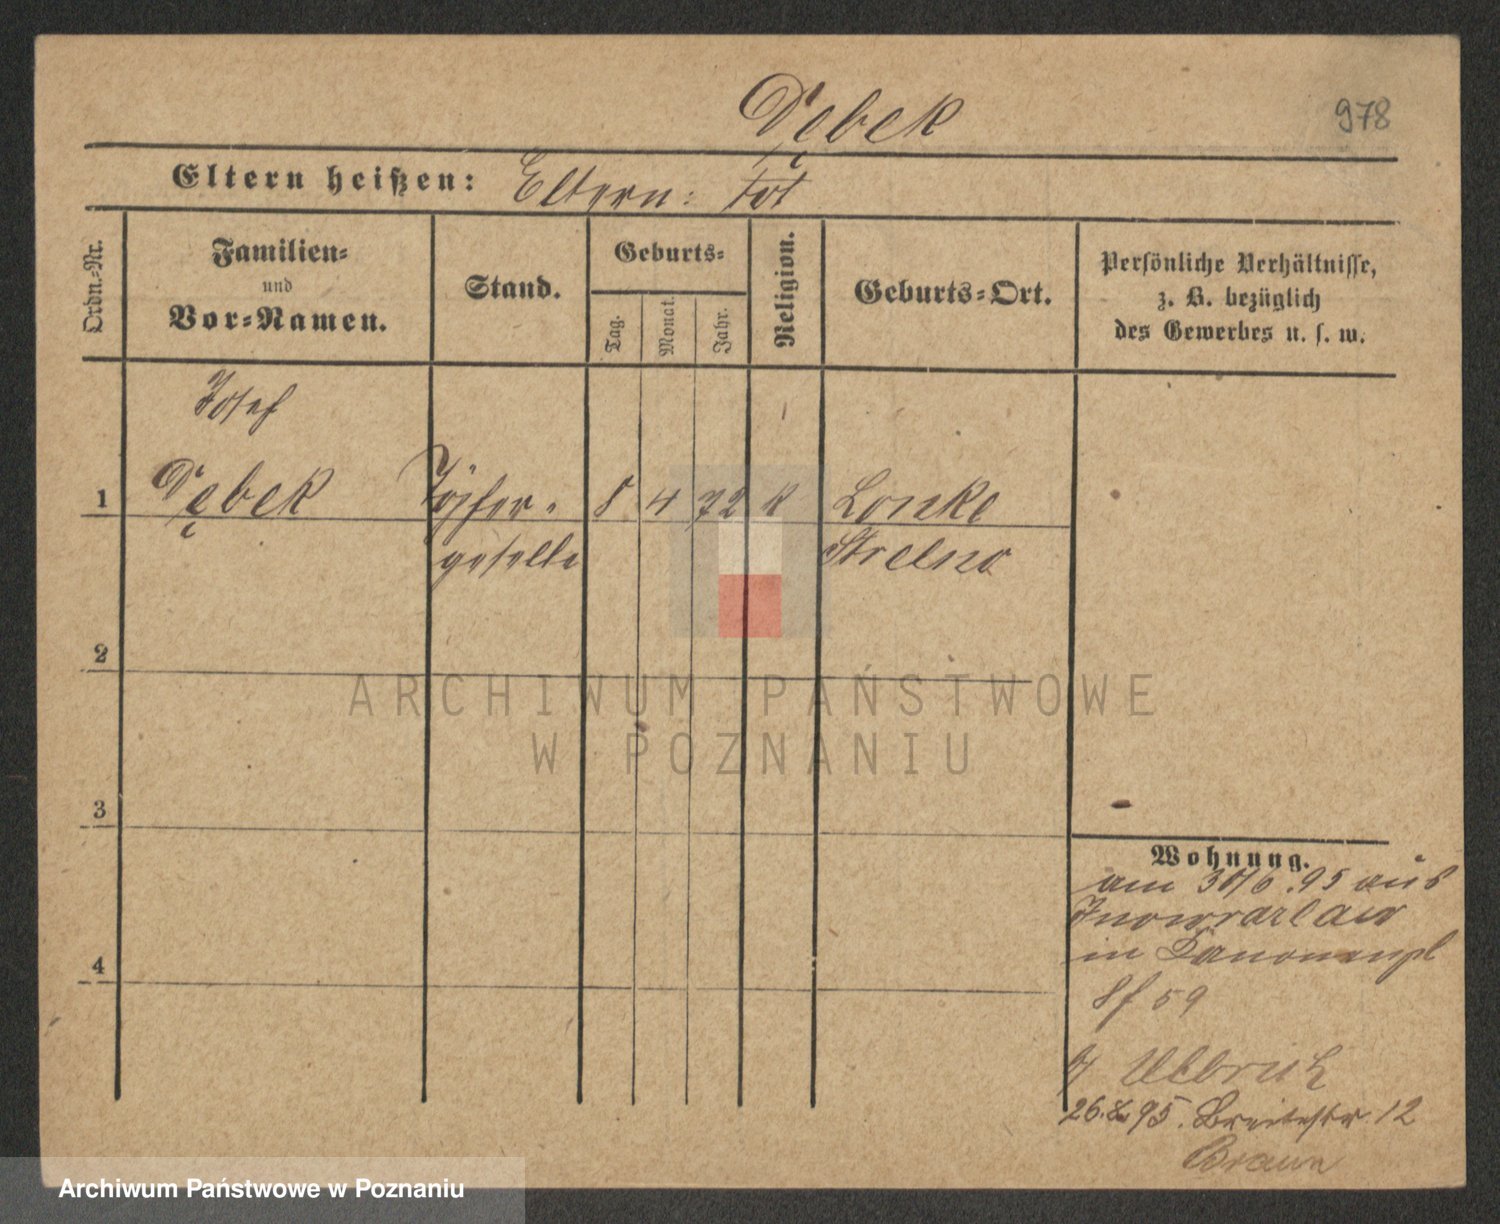 Dębek
978
Eltern heißen: Eltern: tot
Ordn.-Nr.
Familien-
und
Vor-Namen.
Stand.
Geburts-
Tag.
Monat.
Jahr.
Religion.
Geburts-Ort.
Persönliche Verhältnisse,
z. B. bezüglich
des Gewerbes u. s. w.
Josef
1 Dębek Töpfer- 8 4 72 k Lonke
geselle Strelno
2
3
4
ARCHIWUM PAŃSTWOWE
W POZNANIU
Wohnung.
am 30/6.95 aus
Inowrazlaw
in Kanonenpl
59
Ullrich
26.8.95. Breitestr 12
Braun
Archiwum Państwowe w Poznaniu